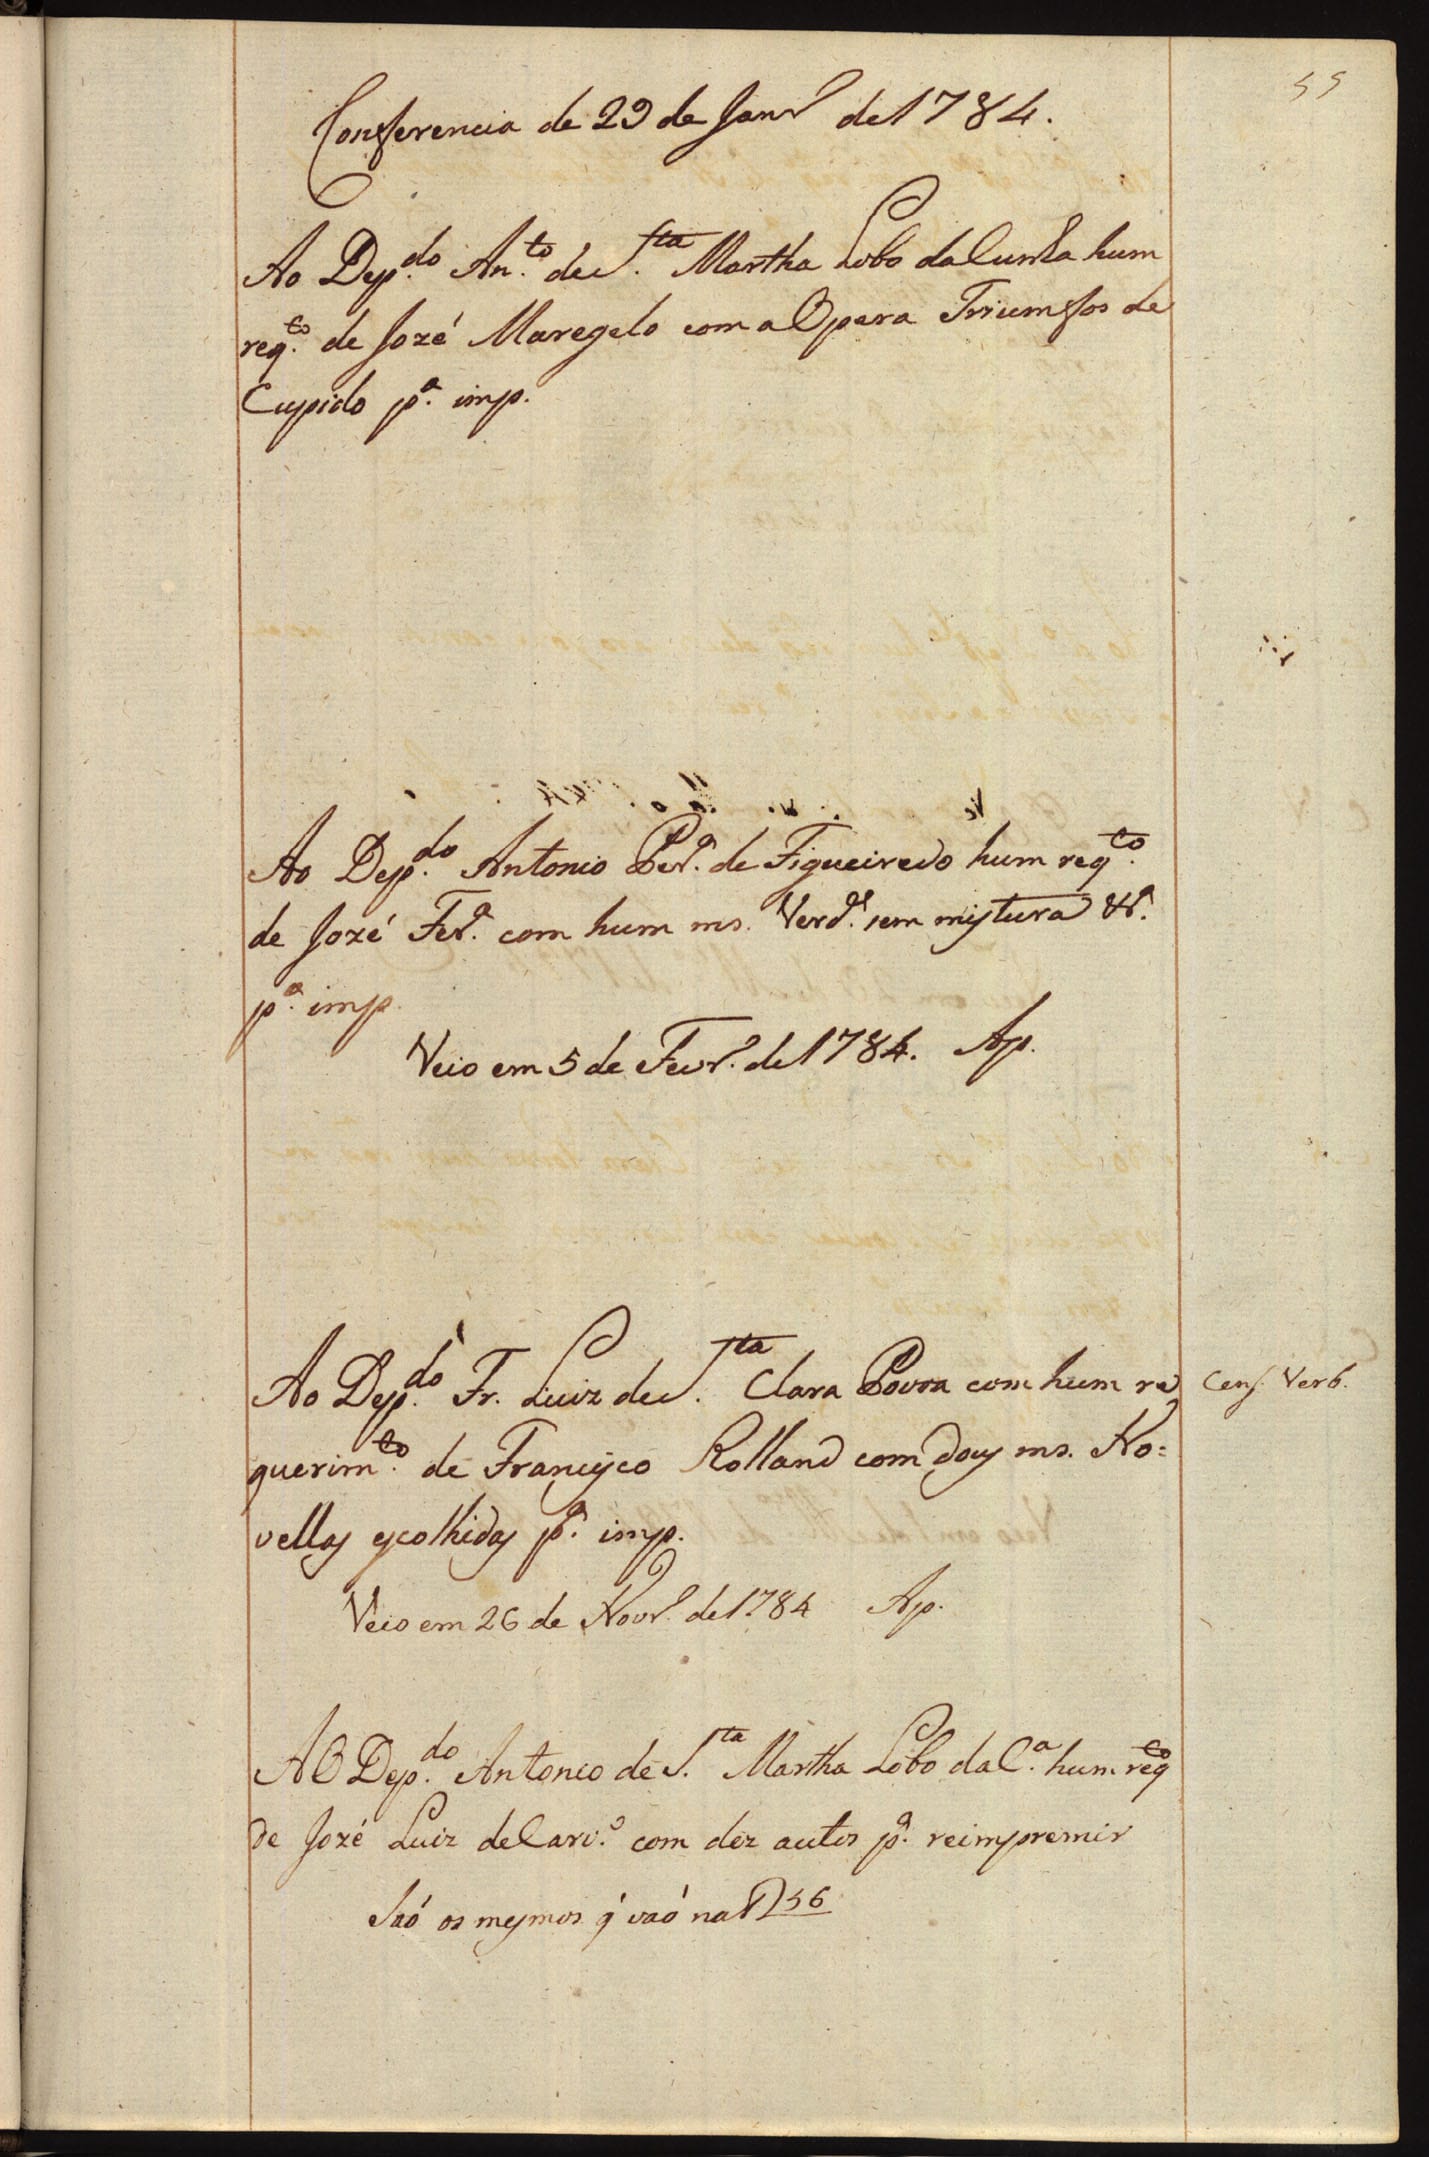 55
Conferencia de 29 de Janr.º de 1784.
Ao Dep.do An.to de S.ta Martha Lobo da Cunha hum
req.to de Jozé Maregelo com a Opera Triumfos de
Cupido p.ª imp.
Ao Dep.do Antonio Per.ª de Figueiredo hum req.to
de Jozé Fer.ª com hum ms. Verd.e sem mistura &.ª
p.ª imp.
Veio em 5 de Fevr.º de 1784. Ap.
Ao Dep.do Fr. Luiz de S.ta Clara Povoa com hum re
Cens. Verb.
querim.to de Francisco Rolland com dous ms. No=
vellas escolhidas p.ª imp.
Veio em 26 de Novr.º de 1784 Ap.
AO Dep.do Antonio de S.ta Martha Lobo da C.ª hum req.to
de Jozé Luiz de Carv.º com dez autos p.ª reimpremir
Saó os mesmos q́ vaó na 56